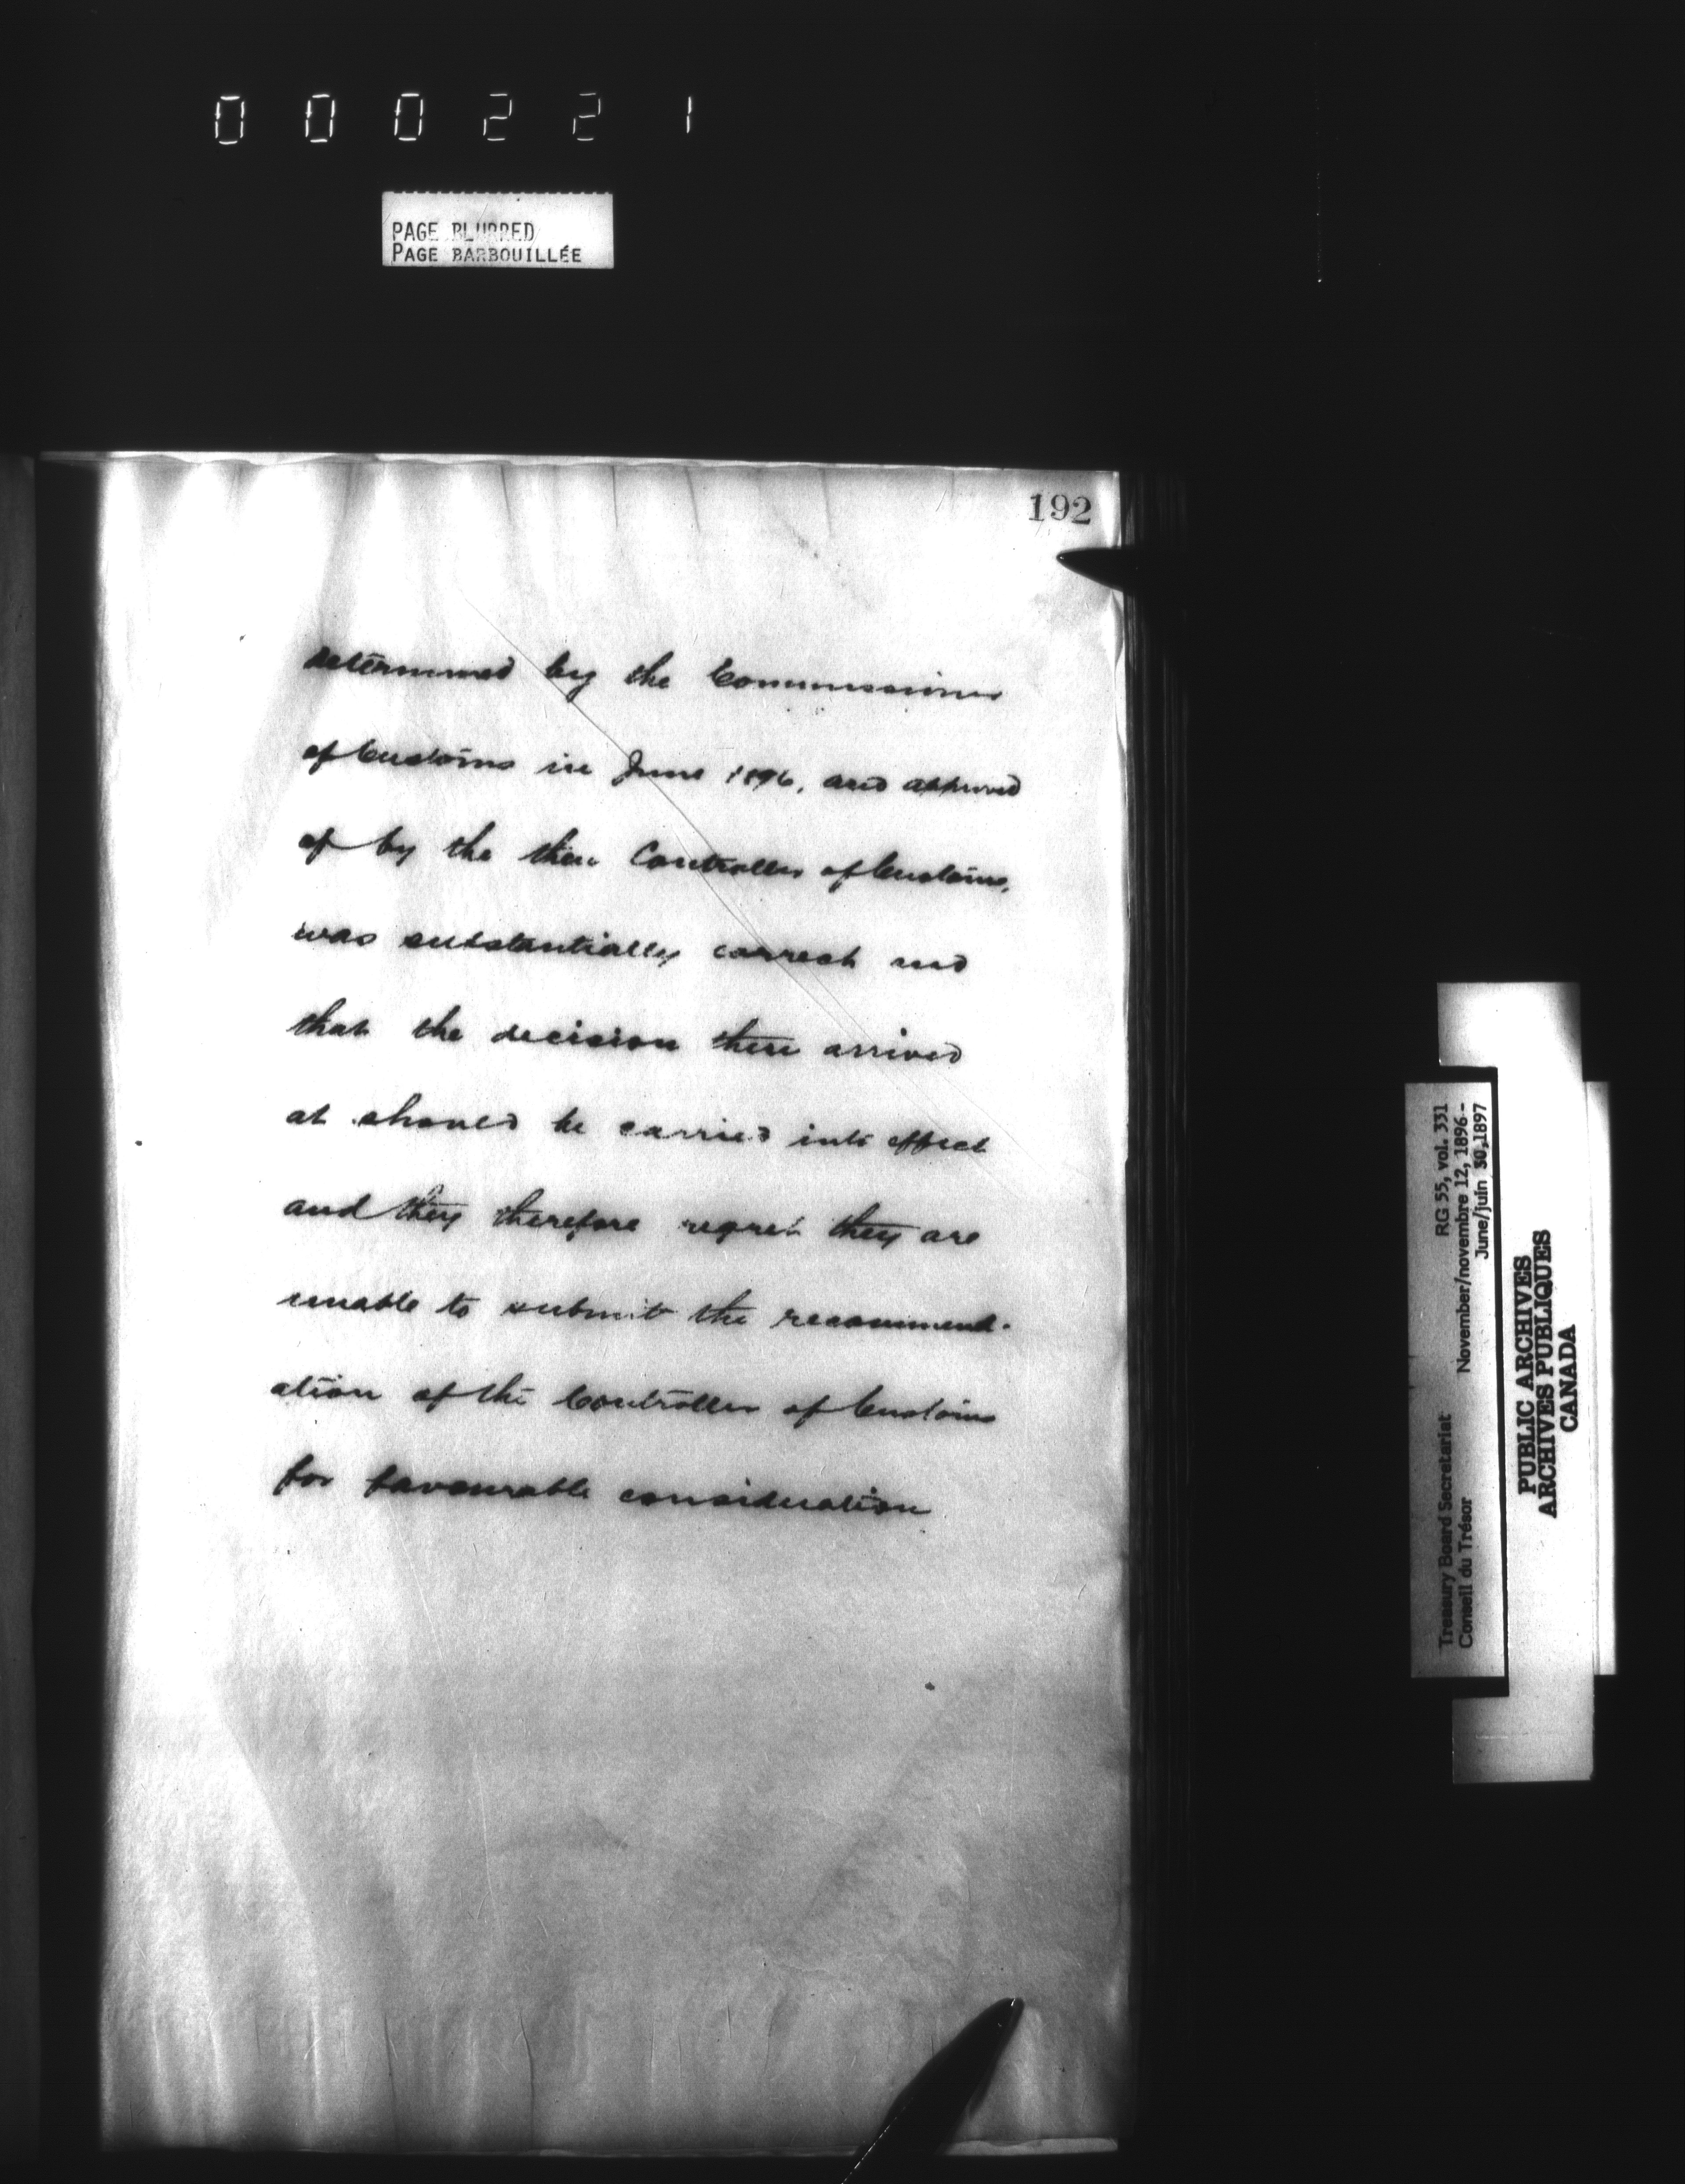 000221
PAGE BLURRED
PAGE BARBOUILLÉE
192
determined by the Commissioner
of Customs in June 1896, and approved
of by the then Controller of Customs,
was substantially correct and
that the decision then arrived
at should be carried into effect
and they therefore regret they are
unable to submit the recommend-
ation of the Controller of Customs
for favourable consideration
Treasury Board Secretariat RG 55, vol. 331
Conseil du Trésor November/novembre 12, 1896-
June/juin 30, 1897
PUBLIC ARCHIVES
ARCHIVES PUBLIQUES
CANADA